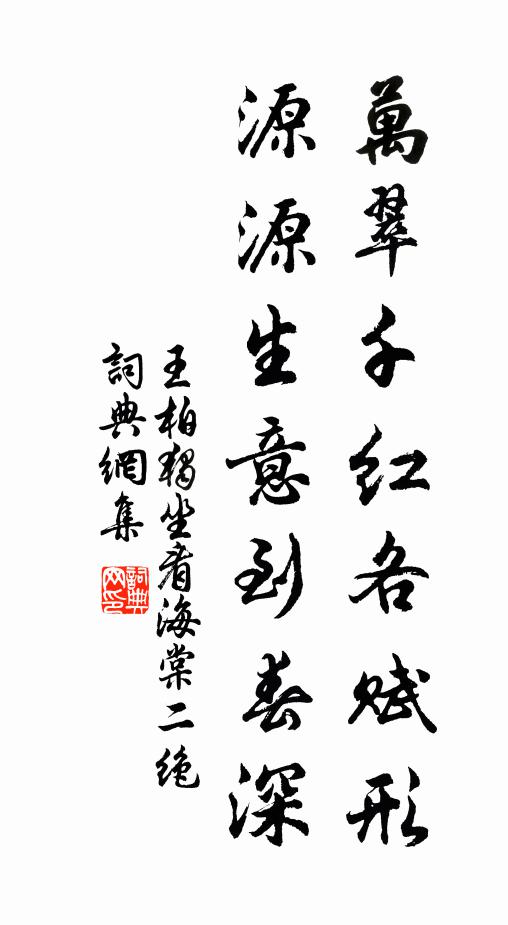 萬翠千紅各賦形
源源生意到春深
王柏獨坐看海棠二絕
詞典網集
詞典網印